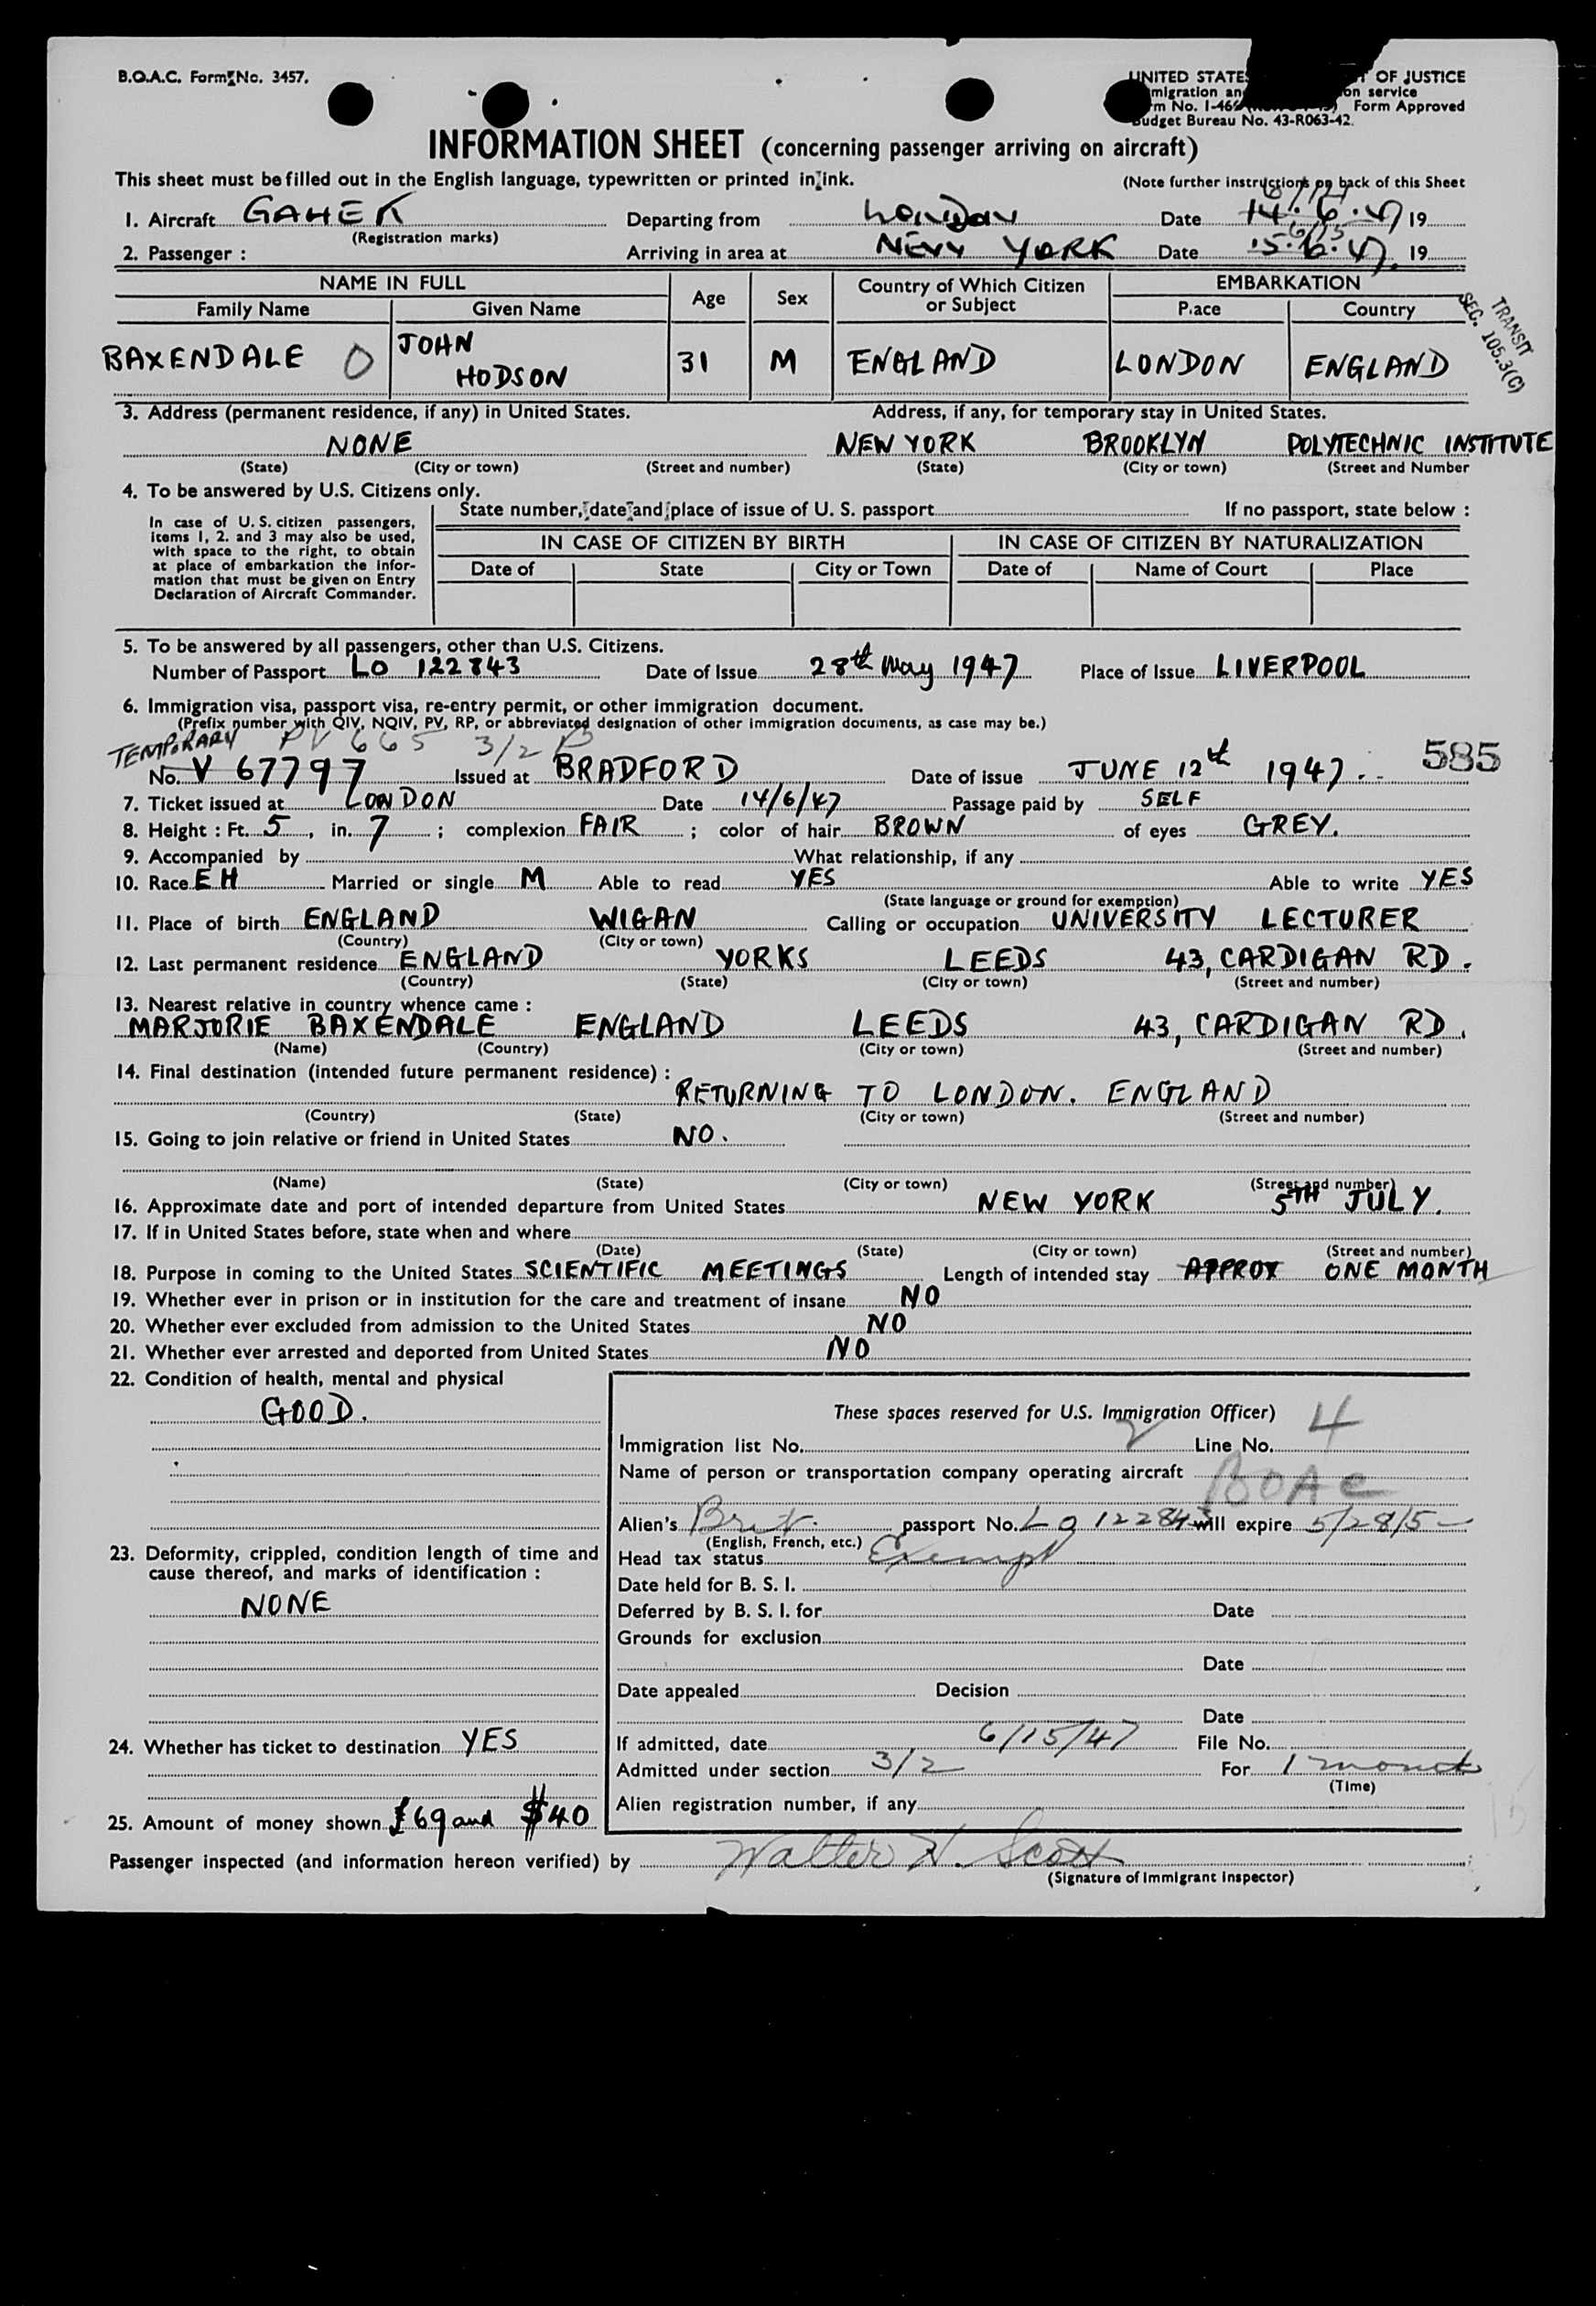 B.O.A.C. Form No. 3457.
UNITED STATES OF JUSTICE
on service
Form No. Form Approved
Budget Bureau No. 43-R063-42.
INFORMATION SHEET (concerning passenger arriving on aircraft)
This sheet must be filled out in the English language, typewritten or printed in ink. (Note further instructions on back of this Sheet
1. Aircraft GAHEK Departing from London Date 14.6.47 19
(Registration marks)
2. Passenger : Arriving in area at NEW YORK Date 15.6.47. 19
NAME IN FULL Age Sex Country of Which Citizen or Subject EMBARKATION
Family Name Given Name Place Country
TRANSIT
SEC. 105.3(C)
BAXENDALE O JOHN HODSON 31 M ENGLAND LONDON ENGLAND
3. Address (permanent residence, if any) in United States. Address, if any, for temporary stay in United States.
NONE NEW YORK BROOKLYN POLYTECHNIC INSTITUTE
(State) (City or town) (Street and number) (State) (City or town) (Street and Number
4. To be answered by U.S. Citizens only.
In case of U.S. citizen passengers, items 1, 2. and 3 may also be used, with space to the right, to obtain at place of embarkation the infor-mation that must be given on Entry Declaration of Aircraft Commander.
State number, date and place of issue of U. S. passport If no passport, state below :
IN CASE OF CITIZEN BY BIRTH IN CASE OF CITIZEN BY NATURALIZATION
Date of State City or Town Date of Name of Court Place
5. To be answered by all passengers, other than U.S. Citizens.
Number of Passport LO 122843 Date of Issue 28th May 1947 Place of Issue LIVERPOOL
6. Immigration visa, passport visa, re-entry permit, or other immigration document.
(Prefix number with QIV, NQIV, PV, RP, or abbreviated designation of other immigration documents, as case may be.)
TEMPORARY PV 665 3/2 B
No. V 67797 Issued at BRADFORD Date of issue JUNE 12th 1947. 585
7. Ticket issued at LONDON Date 14/6/47 Passage paid by SELF
8. Height : Ft. 5, in. 7 ; complexion FAIR ; color of hair BROWN of eyes GREY.
9. Accompanied by What relationship, if any
10. Race EH Married or single M Able to read YES Able to write YES
(State language or ground for exemption)
11. Place of birth ENGLAND WIGAN Calling or occupation UNIVERSITY LECTURER
(Country) (City or town)
12. Last permanent residence ENGLAND YORKS LEEDS 43, CARDIGAN RD.
(Country) (State) (City or town) (Street and number)
13. Nearest relative in country whence came :
MARJORIE BAXENDALE ENGLAND LEEDS 43, CARDIGAN RD.
(Name) (Country) (City or town) (Street and number)
14. Final destination (intended future permanent residence) :
RETURNING TO LONDON. ENGLAND
(Country) (State) (City or town) (Street and number)
15. Going to join relative or friend in United States NO.
(Name) (State) (City or town) (Street and number)
16. Approximate date and port of intended departure from United States NEW YORK 5TH JULY.
17. If in United States before, state when and where
(Date) (State) (City or town) (Street and number)
18. Purpose in coming to the United States SCIENTIFIC MEETINGS Length of intended stay APPROX ONE MONTH
19. Whether ever in prison or in institution for the care and treatment of insane NO
20. Whether ever excluded from admission to the United States NO
21. Whether ever arrested and deported from United States NO
22. Condition of health, mental and physical
GOOD.
23. Deformity, crippled, condition length of time and cause thereof, and marks of identification :
NONE
24. Whether has ticket to destination YES
25. Amount of money shown £69 and $40
These spaces reserved for U.S. Immigration Officer)
Immigration list No. 2 Line No. 4
Name of person or transportation company operating aircraft BOAC
Alien's Brit. passport No. LO 122843 will expire 5/28/5
(English, French, etc.)
Head tax status Exempt
Date held for B. S. I.
Deferred by B. S. I. for Date
Grounds for exclusion
Date
Date appealed Decision
Date
If admitted, date 6/15/47 File No.
Admitted under section 3/2 For 1 month
(Time)
Alien registration number, if any
Passenger inspected (and information hereon verified) by Walter H. Scott
(Signature of Immigrant Inspector)